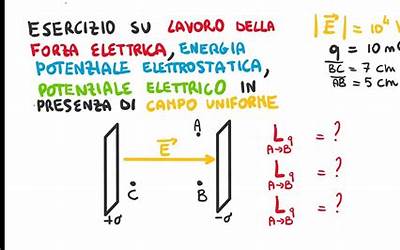 ESERCIZIO SU LAVORO DELLA
FORZA ELETTRICA, ENERGIA
POTENZIALE ELETTROSTATICA,
POTENZIALE ELETTRICO IN
PRESENZA DI CAMPO UNIFORME
|E| = 10⁴ V
q = 10 m
BC = 7 cm
AB = 5 cm
A
E
C
B
+σ
-σ
L q = ?
A→B
L q = ?
A→B
L q = ?
A→B